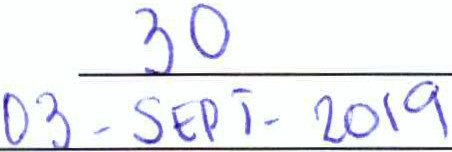 30
03 - SEPT - 2019